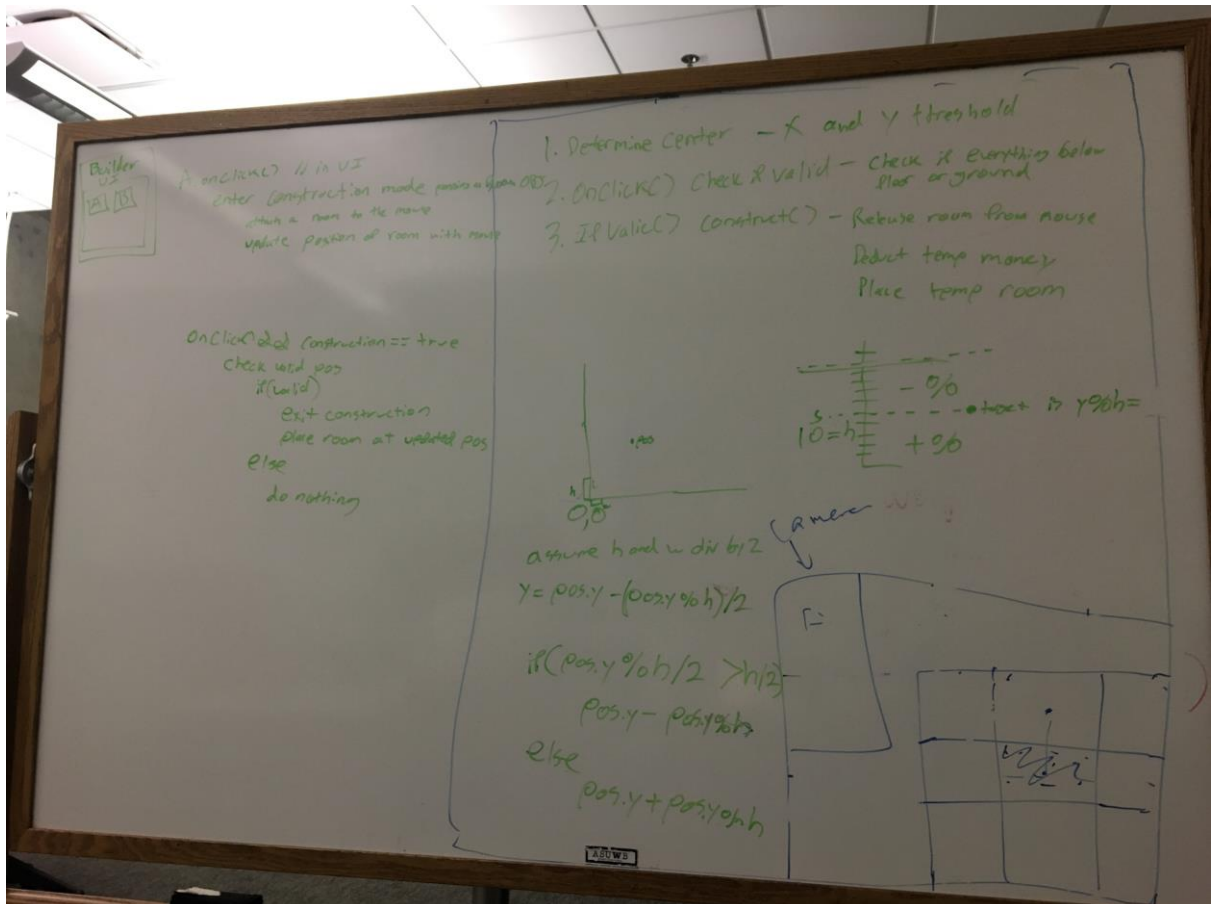 Builder
UI
A B
A onClick() // in UI
enter construction mode
attach a room to the mouse
update position of room with mouse
OnClick() && construction == true
check valid pos
if(valid)
exit construction
place room at updated pos
else
do nothing
1. Determine Center - X and Y threshold
2. OnClick() Check if valid - Check if everything below
floor or ground
3. If Valid() Construct() - Release room from mouse
Deduct temp money
Place temp room
- %
5
10=h
+ %
is y%h=
pos
h
0,0
assume h and w div by 2
y = pos.y - (pos.y % h)/2
if(pos.y % h/2 > h/2)
pos.y - pos.y%h
else
pos.y + pos.y%h
Camera
ASUWB